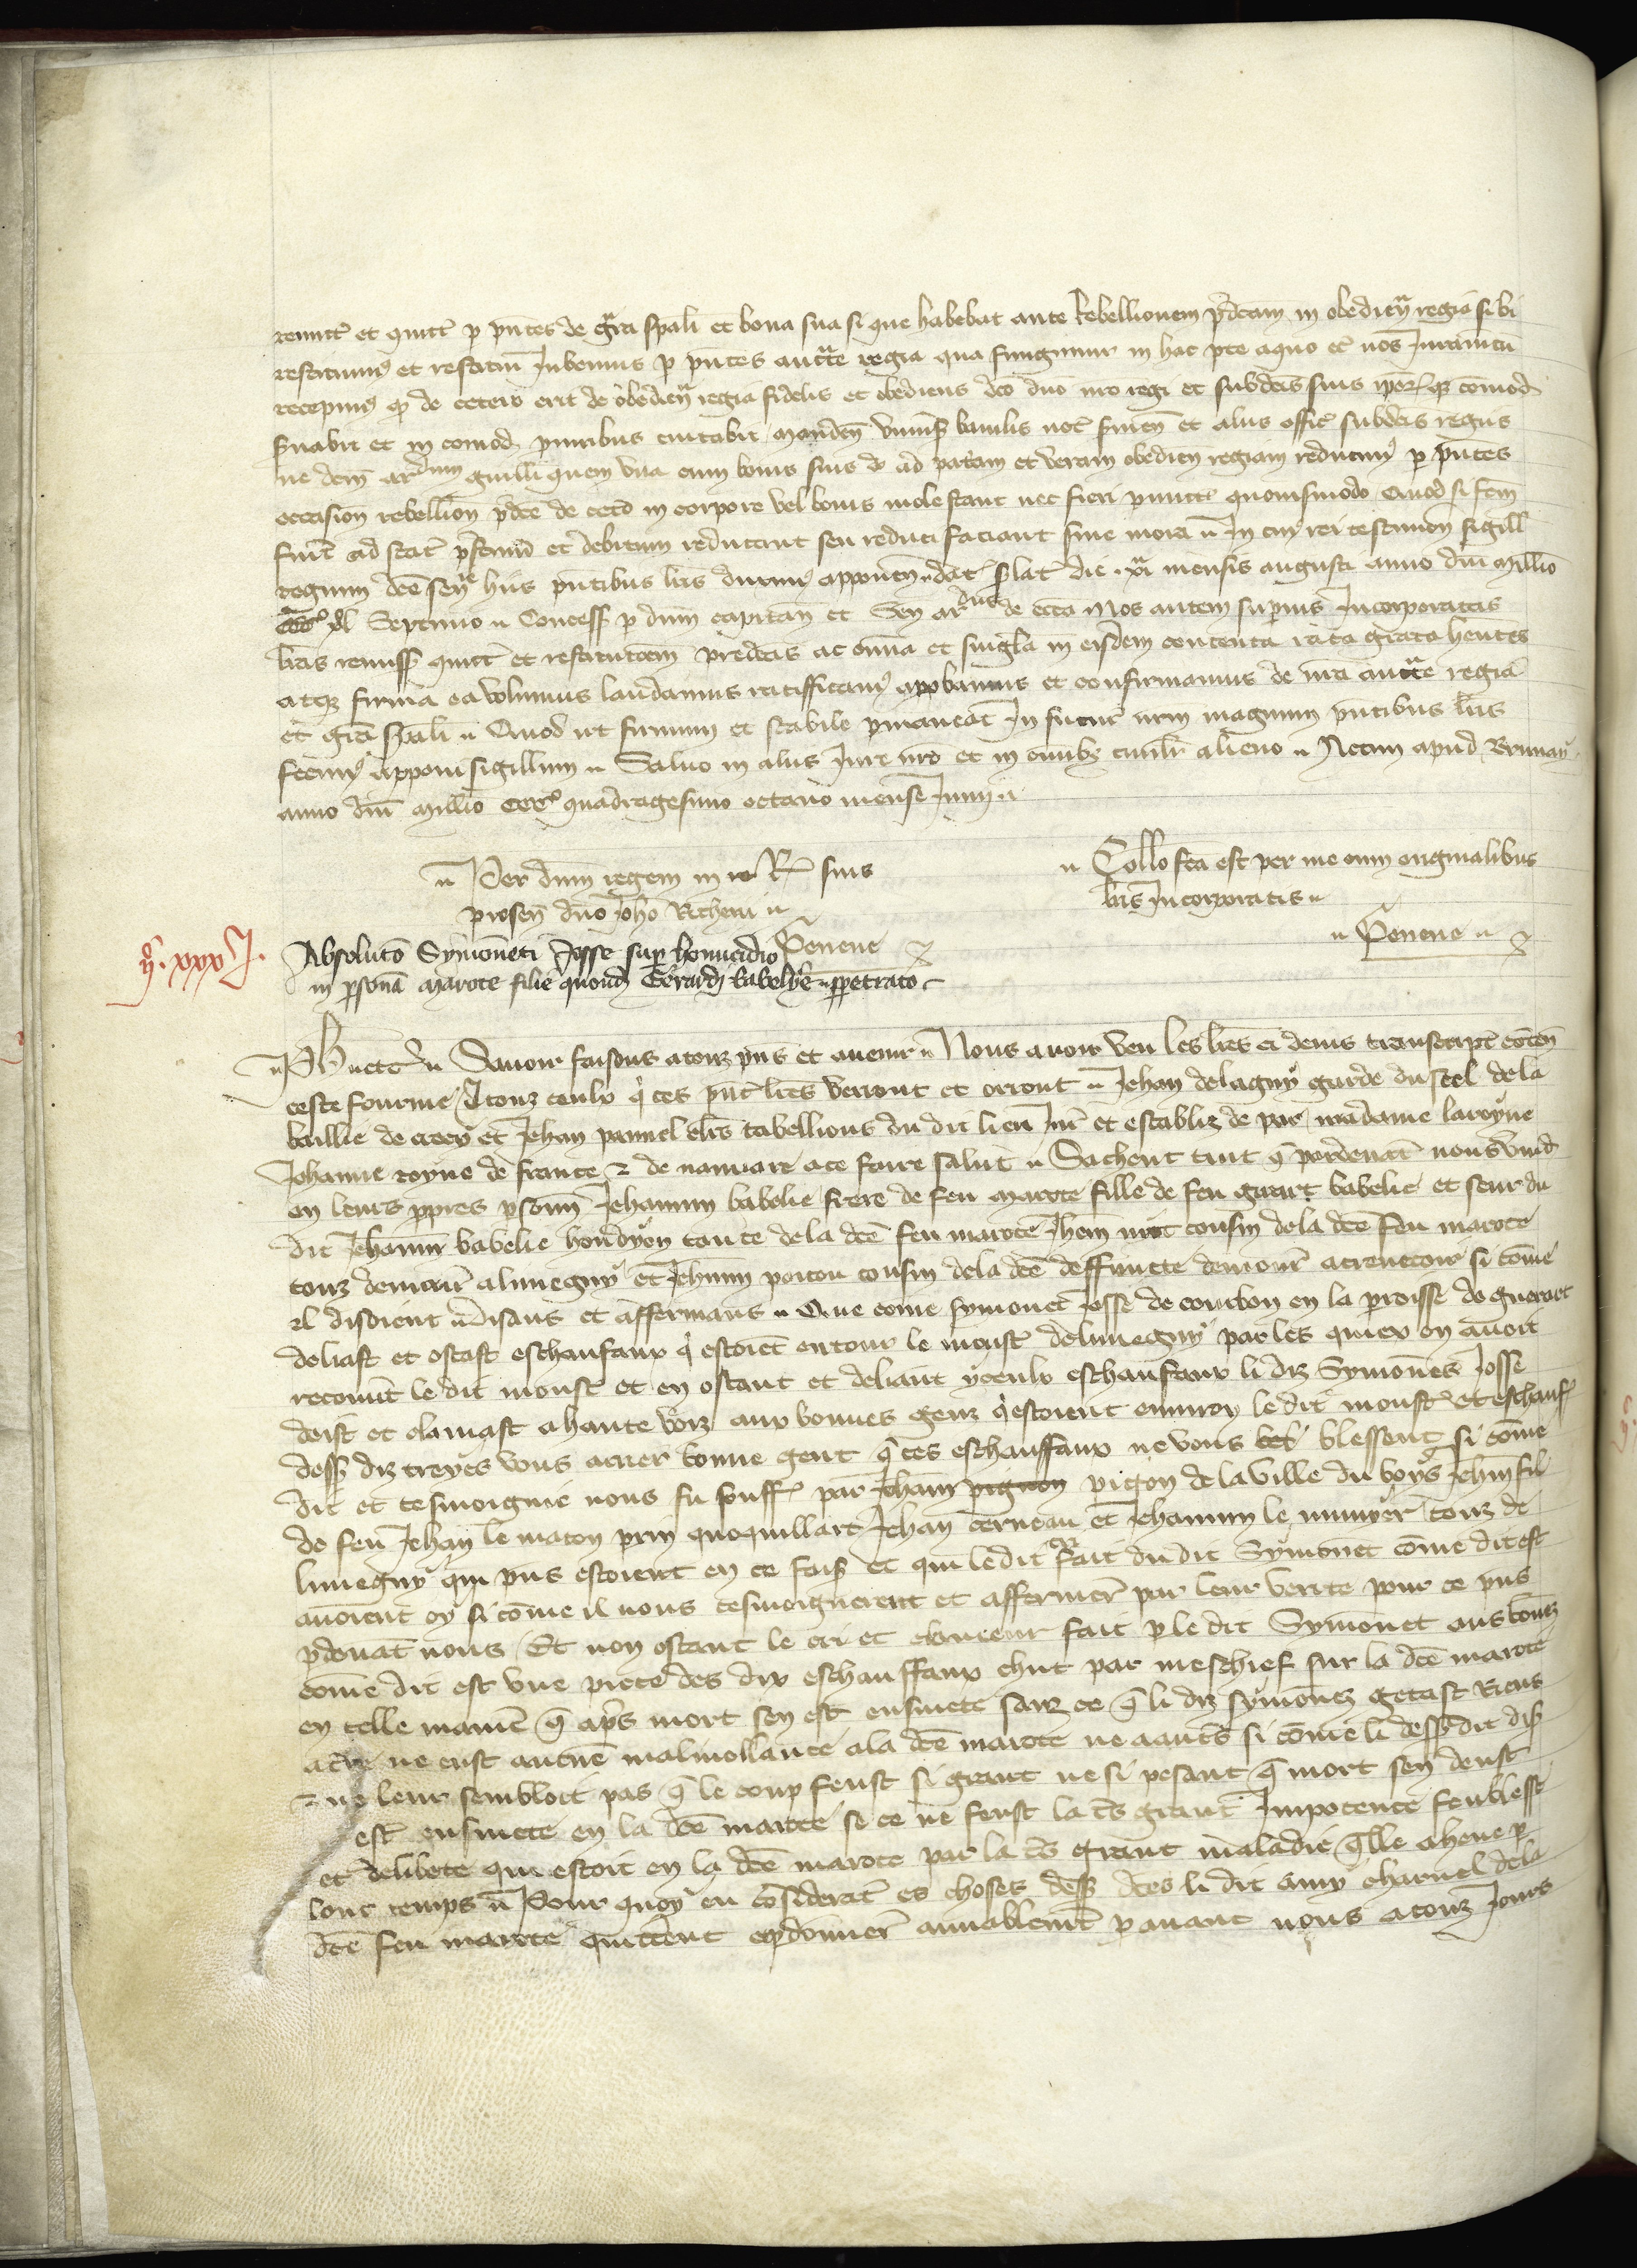 remitt et quitt p pntes de gra spali et bona sua si que habebat ante Rebellionem pdcam in obedien regia sibi
restituim et restitui Jubemus p pntes auctte regia qua fungimur in hac pte a quo et nos Juramtu
recepim qd de cetero erit de obedien regia fidelis et obediens dco dno nro regi et subdtis suis comod
suabit et in comod pnribus euitabit manden vniuss bauliis et aliis offic subdtis regiis
ne dcm ardum guilli quem vna cum bonis suis ad patam et veram obedien regiam reducim p pntes
occasion rebellion pdce de ceto in corpore vel bonis molestent nec fieri pmitt quouismodo Quod si fcm
fuit ad stat pstinu et debitum reducant seu reduci faciant sine mora In cui rei testimon sigill
regium dce sen hiis pntibus lris duxim apponen dat die xi mensis augusti anno dni millio
ccc xl Septimo Concess p dnm capitan et Sen ardus de Nos autem supius Jncorporatas
lras remiss quitt et restitucoem predcas ac omia et singla in eisdem contenta rata grata hentes
atqz firma ea volumus laudamus ratifficam apobamus et confirmamus de nra auctte regia
et gra spali Quod ut firmum et stabile pmaneat In futur nrm magnum pntibus lris
fecim apponi sigillum Saluo in aliis Jure nro et in omibz quolt alieno Actum apud Brunay
anno dni millio ccc quadragesimo octauo mense Junij
Per dnm regem in suis
presen dno Joho Richeri
Peneue
Collo fca est per me cum originalibus
lris Jncorporatis
Peneue
xxxJ.
Absoluto Symoneti Josse sup homicidio
in psona marote filie quond Gerardi babelye ppetrato
Ph etc Sauoir faisons a touz pns et auenir Nous auoir veu les lres ci desus transcript conten
ceste fourme A touz ceulx q ces pnt lres verront et orront Jehan de lagny garde du scel de la
baillie de crecy et Jehan pannel clrs tabellions du dit lieu Jur et establiz de par madame la royne
Jehanne royne de france & de nauarre a ce faire salut Sachent tuit q pardeuant nous vind
en leurs ppres psonn Jehannin babelie frere de feu marote fille de feu guart babelie et seur du
dit Jehannin babelie hondyon tante de la dce feu marote Jhan cousin de la dce feu marote
touz demour a limegny et Jehnin poitou cousin de la dce deffuncte demour a si come
il disoient disans et affermans Que come symonet Josse de courbon en la proisse de guerart
deliast et ostast eschaufaux q estoiet entour le moust de limegny par les quiex on auoit
recouut le dit moust et en ostant et deliant yceulx eschaufaux li diz Symones Josse
deist et clamast a haute voiz aux bonnes genz q estoient enuiron le dit moust et eschauf
dess diz treyes vous arrier bonne gent q ces eschauffaux ne vous blessent si come
dit et tesmoigne nous fu souff par Jehan pignon pigon de la ville du boys Jehin fil
de feu Jehan le macon prin quoquillart Jehan cerneau et Jehannin le muner touz de
limegny qui pns estoient en ce fais et qui le dit fait du dit Symonet come dit est
auoient oy si come il nous tesmoignerent et affermer par leur verite pour ce pns
pdeuat nous Et non ostant le cri et clameur fait p le dit Symonet aus bonez
come dit est vne piece des diz eschauffaux chut par meschief sur la dce marote
en telle manie q aps mort sen est ensiuete sanz ce q li diz symonez getast Riens
a tre ne eust aucune maluollance a la dce marote ne a auts si come li dessdit dis
& ne leur sembloit pas q le coup feust si grant ne si pesant q mort sen deust
estr ensiuete en la dce marote se ce ne feust la ts grant Impotence feublesse
et delibete qui estoit en la dce marote par la ts grant maladie qlle a heue p
lonc temps Pour quoy eu considerat es choses dess dces li dit amy charnel de la
dce feu marote quittent epdonner amablemt p auant nous a touz Jours